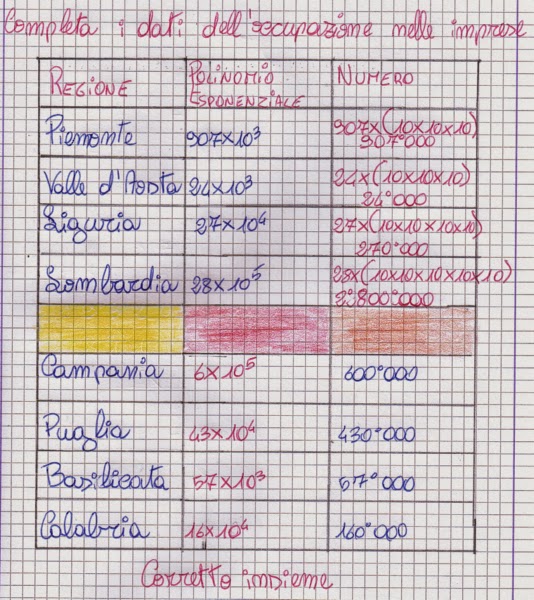 Completa i dati dell'occupazione nelle imprese
REGIONE
POLINOMIO
ESPONENZIALE
NUMERO
Piemonte
907x10³
907x(10x10x10)
907°000
Valle d'Aosta
24x10³
24x(10x10x10)
24°000
Liguria
27x10⁴
27x(10x10x10x10)
270°000
Lombardia
28x10⁵
28x(10x10x10x10x10)
2°800°000
Campania
6x10⁵
600°000
Puglia
43x10⁴
430°000
Basilicata
57x10³
57°000
Calabria
16x10⁴
160°000
Corretto insieme